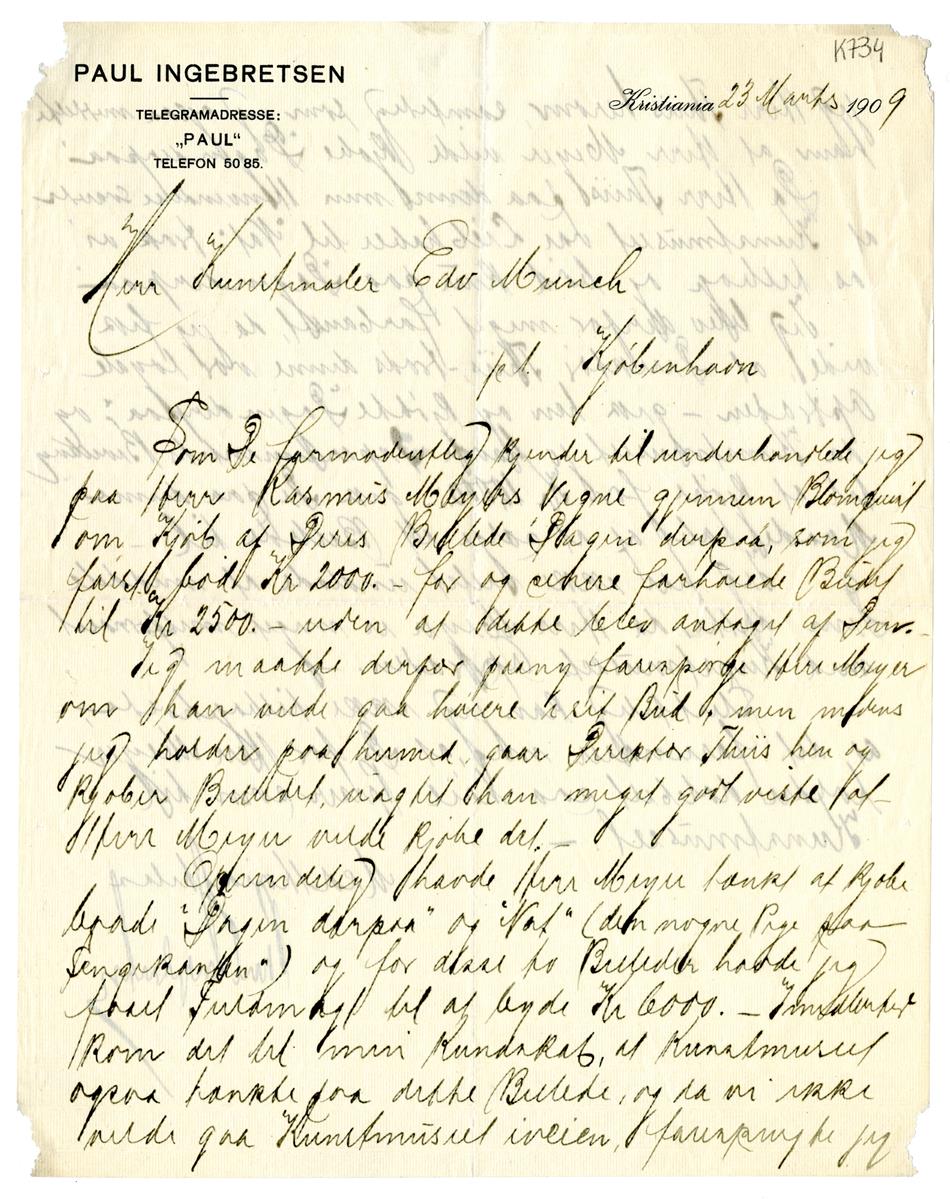 K734
PAUL INGEBRETSEN
TELEGRAMADRESSE:
„PAUL“
TELEFON 5085.
Kristiania 23 Marts 1909
Herr Kunstmaler Edv Munch
pt. Kjöbenhavn
Som De formodentlig kjender til underhandlede jeg
paa Herr Rasmus Meyers Vegne gjennem Blomquist
om Kjöb af Deres Billede Dagen derpaa, som jeg
först böd Kr 2000.- for og senere forhøiede Budet
til Kr 2500.- uden at dette blev antaget af Dem.-
Jeg maatte derfor paany forespørge Herr Meyer
om han vilde gaa høiere i sit Bud, men medens
jeg holder paa hermed, gaar Direktör Thiis hen og
kjøber Billedet uagtet han meget godt viste at
Herr Meyer vilde kjøbe det.-
Oprindelig havde Herr Meyer tænkt at kjøbe
baade "Dagen derpaa" og "Nat" (den nøgne Pige paa
Sengekanten") og for disse to Billeder havde jeg
faaet Fuldmagt til at byde Kr 6000.- Imidlertid
kom det til min Kundskab, at Kunstmuseet
ogsaa tænkte paa dette Billede, og da vi ikke
vilde gaa Kunstmuseet iveien, forespurgte jeg